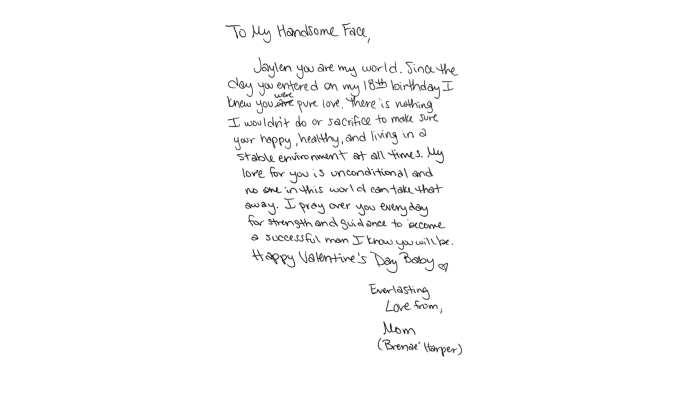 To My Handsome Face,
Jaylen you are my world. Since the
day you entered on my 18th birthday I
knew you were pure love. There is nothing
I wouldn't do or sacrifice to make sure
your happy, healthy, and living in a
stable environment at all times. My
love for you is unconditional and
no one in this world can take that
away. I pray over you everyday
for strength and guidance to become
a successful man I know you will be.
Happy Valentine's Day Baby ♡
Everlasting
Love from,
Mom
(Brenae' Harper)